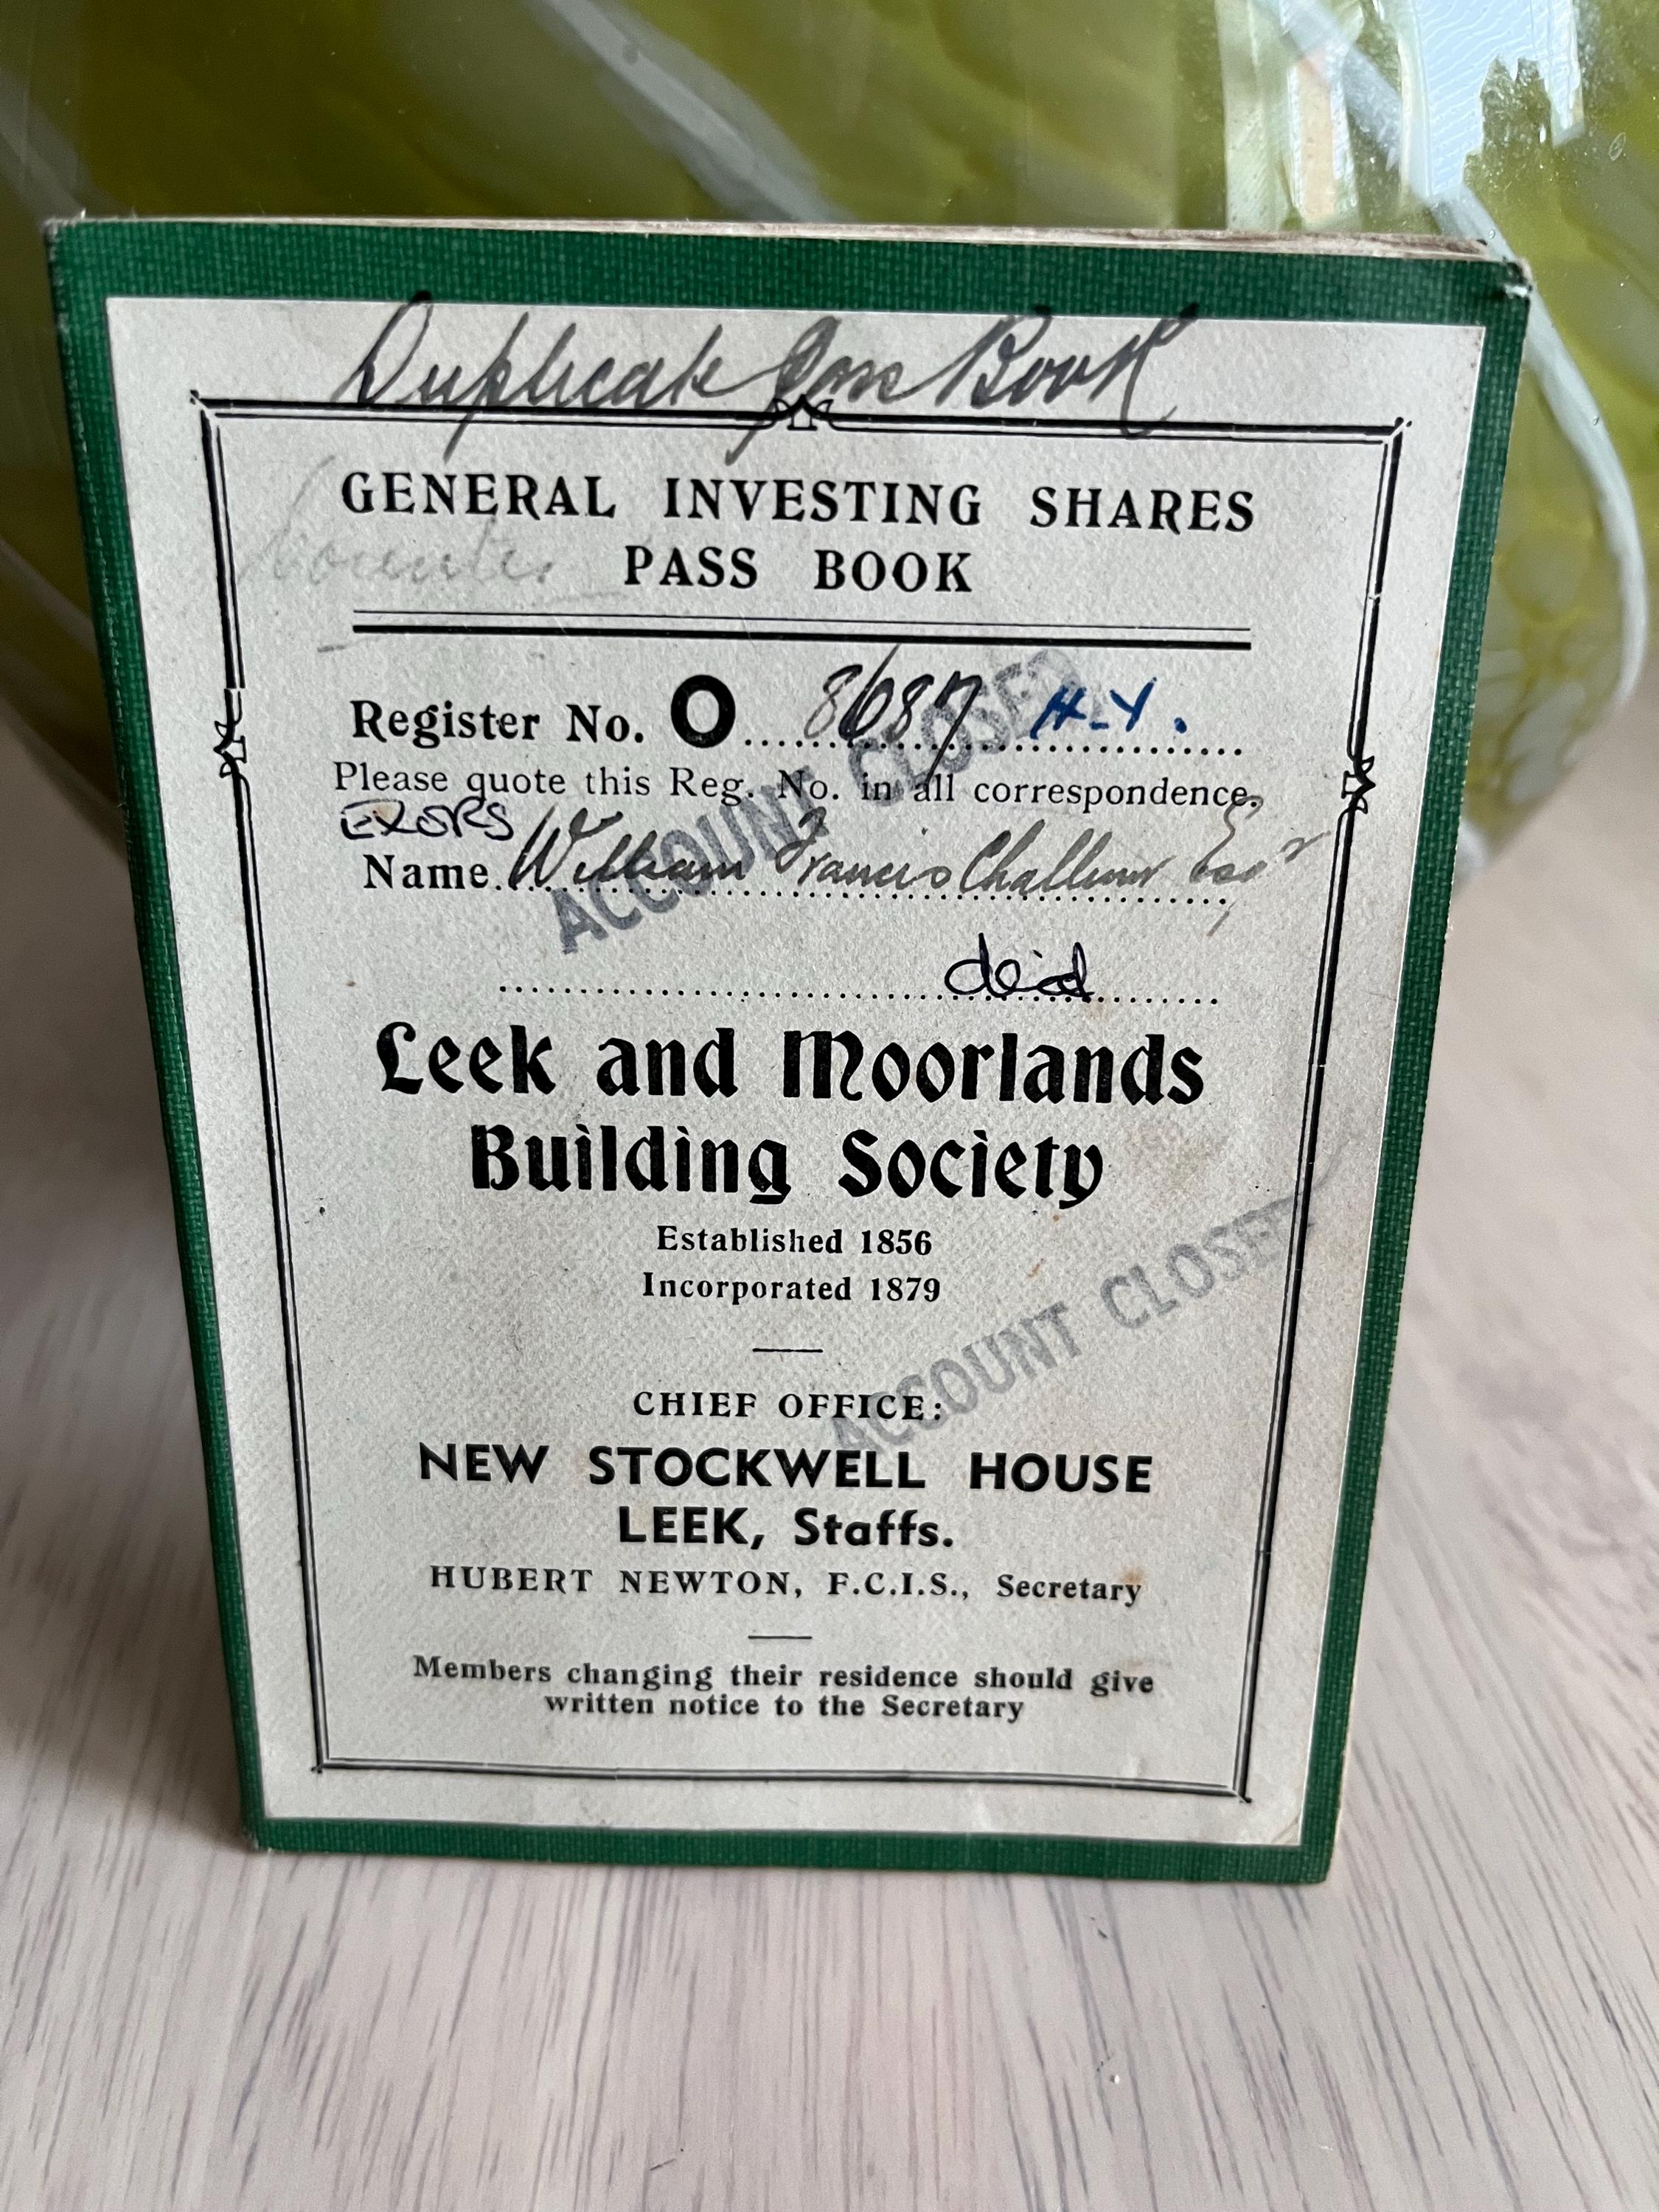 Duplicate Pass Book
GENERAL INVESTING SHARES
PASS BOOK
Register No. O 8687 H-Y.
Please quote this Reg. No. in all correspondence.
EXORS
Name William Francis Challinor Esqr
dec'd
ACCOUNT CLOSED
Leek and Moorlands
Building Society
Established 1856
Incorporated 1879
ACCOUNT CLOSED
CHIEF OFFICE:
NEW STOCKWELL HOUSE
LEEK, Staffs.
HUBERT NEWTON, F.C.I.S., Secretary
Members changing their residence should give
written notice to the Secretary